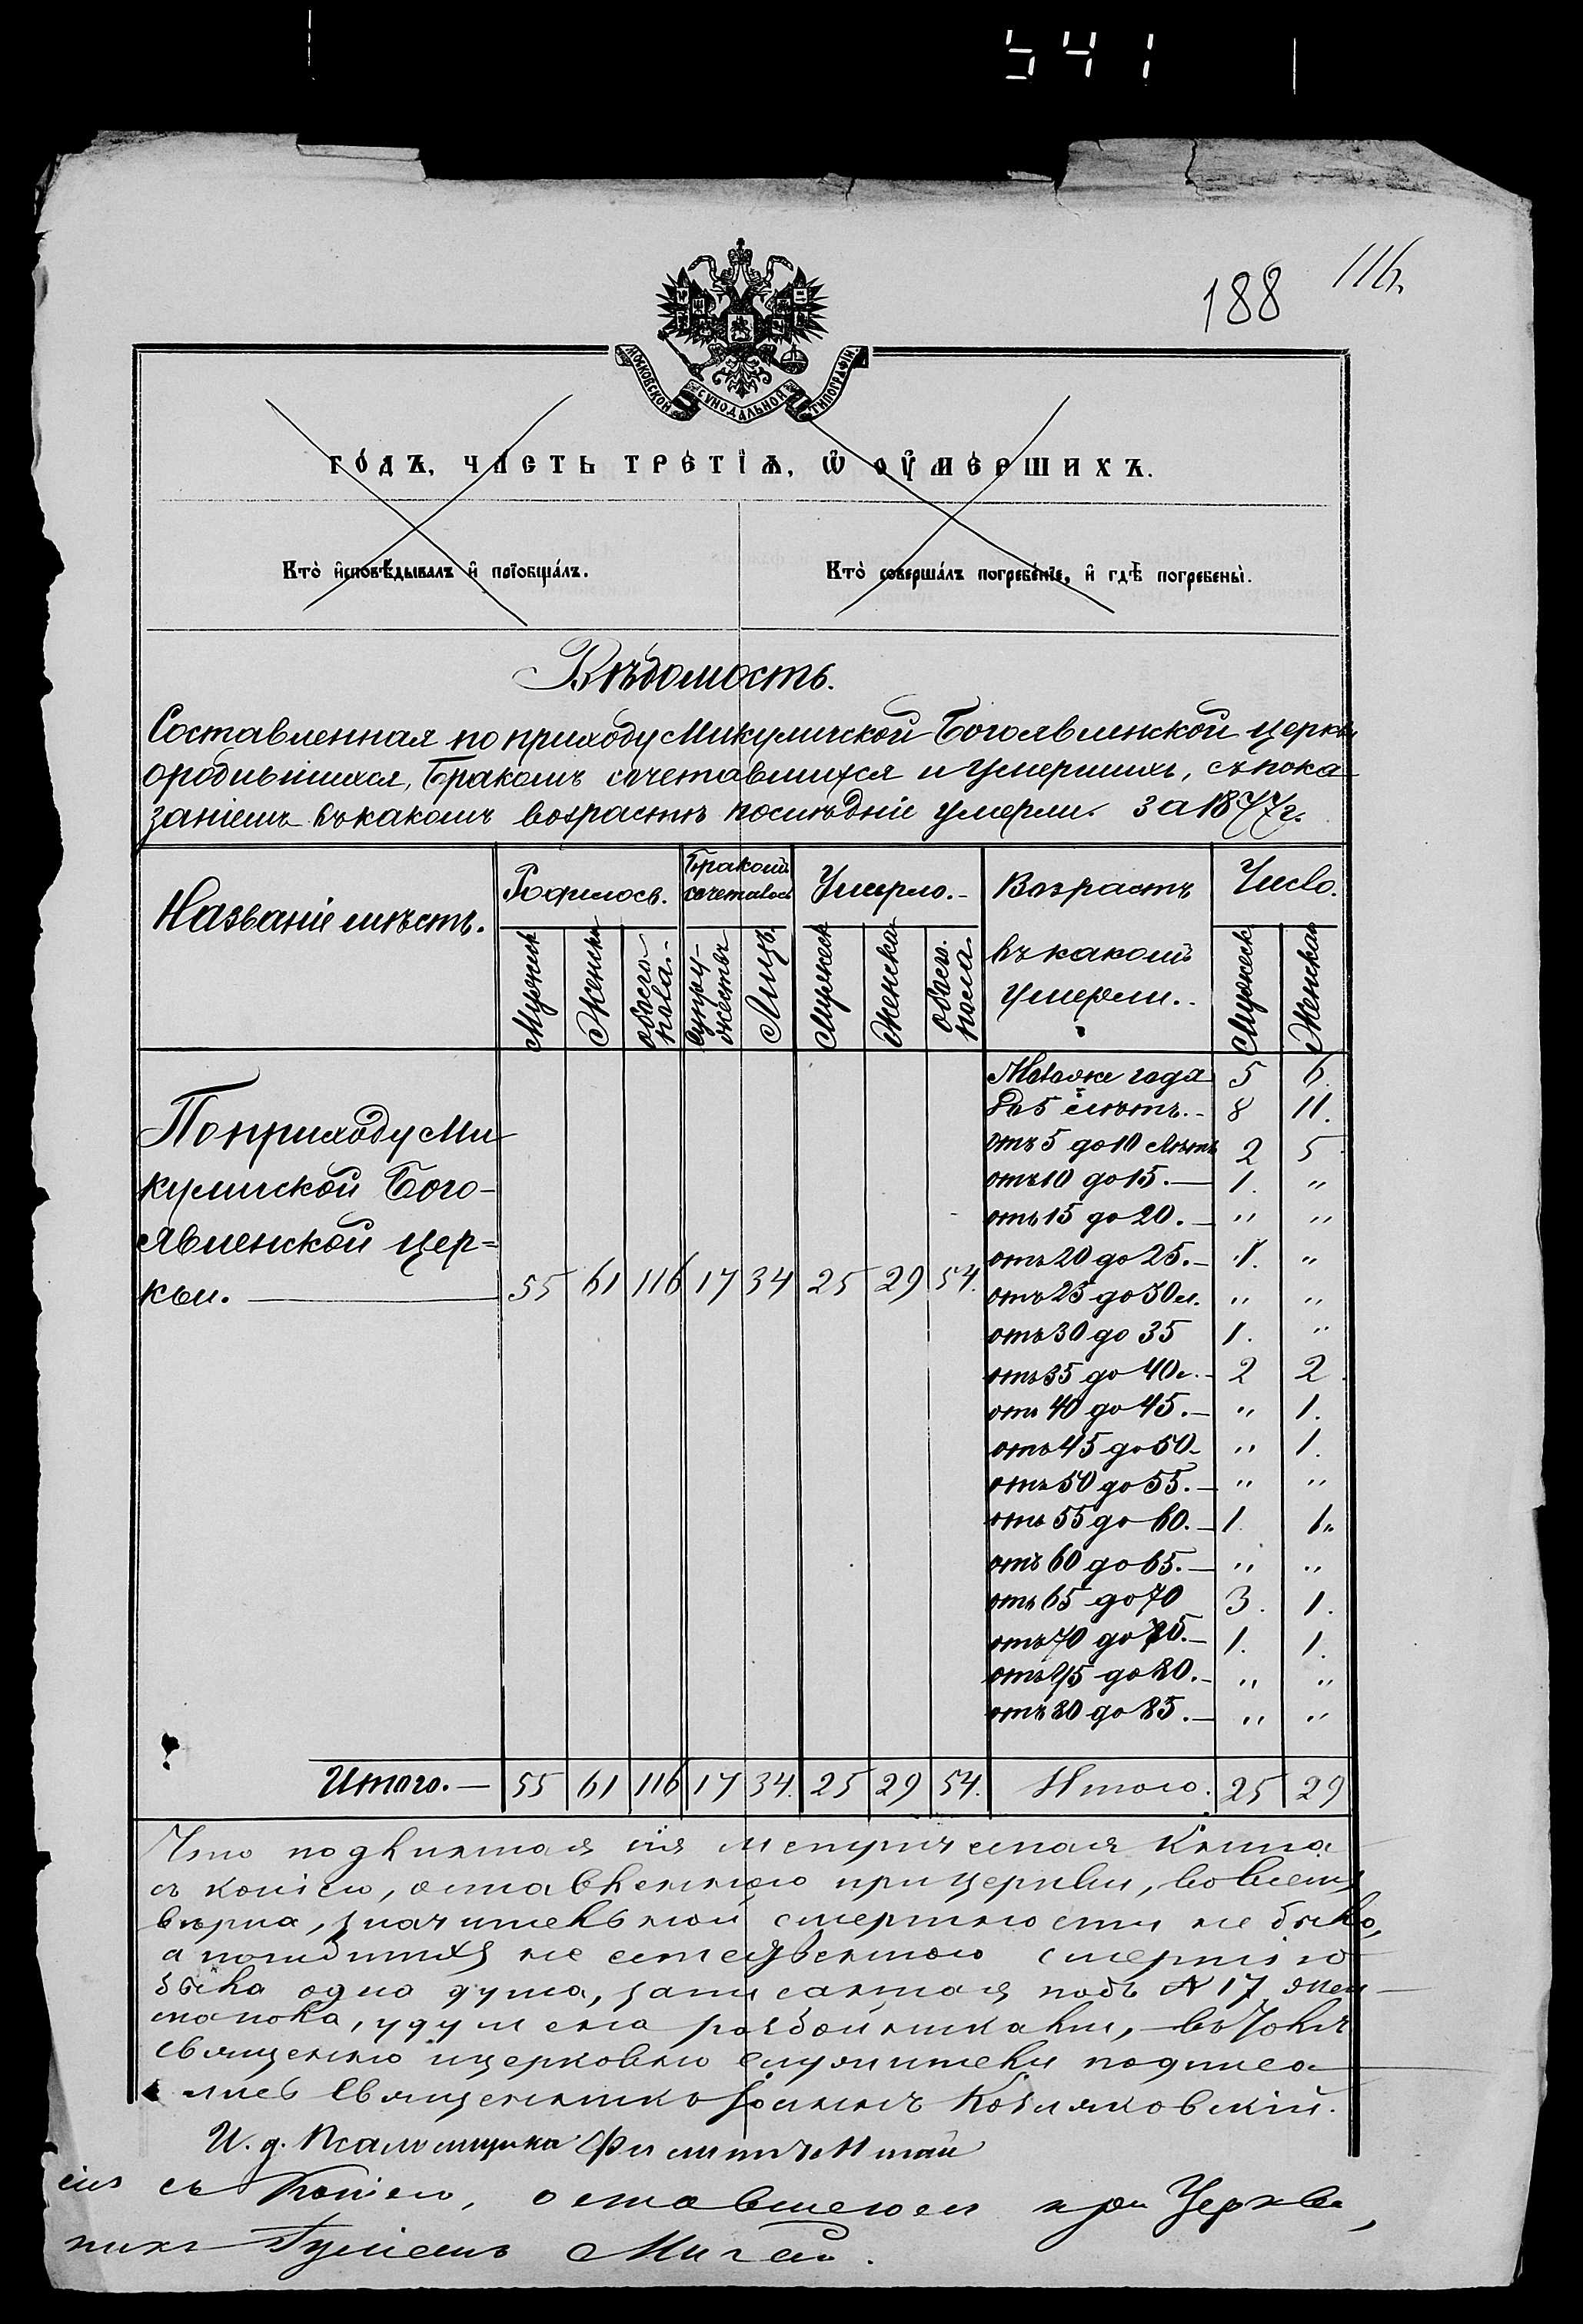 541
188 116.
МОСКОВСКОЙ СУНОДАЛЬНОЙ ТИПОГРАФІИ.
го́дъ, часть тре́тїѧ, ѽ оу҆ме́ршихъ.
Кто̀ и҆сповѣ́дывалъ и҆ прїобща́лъ.
Кто̀ соверша́лъ погребе́нїе, и҆ гдѣ̀ погребены̀.
Вѣдомость.
Составленная по приходу Микуличской Богоявленской церкви
ородившихся, Бракомъ сочетавшихся и Умершихъ, съ пока
заніемъ въ какомъ возрастѣ послѣдніе умерли. За 1877 г.
Названіе мѣстъ.
Родилось.
Бракомъ сочеталось
Умерло.-
Возрастъ въ какомъ умерли..
Число.
Мужеск
Женск
обоего пола.
Супружествъ
Лицъ.
Мужеск
Женска
обоего. пола.
Мужеск
Женска
По приходу Ми
куличской Бого-
явленской цер=
кви. 55 61 116 17 34 25 29 54.
Моложе года 5 6.
до 5 лѣтъ.- 8 11.
отъ 5 до 10 лѣтъ 2 5
отъ 10 до 15.— 1. "
отъ 15 до 20.— " "
отъ 20 до 25.— 1. "
отъ 25 до 30 л. " "
отъ 30 до 35 1. "
отъ 35 до 40 л.- 2 2
отъ 40 до 45.— " 1.
отъ 45 до 50- " 1.
отъ 50 до 55.— " "
отъ 55 до 60.— 1. 1"
отъ 60 до 65.— " "
отъ 65 до 70 3. 1.
отъ 70 до 75.— 1. 1.
отъ 75 до 80.- " "
отъ 80 до 85.— " "
Итого.— 55 61 116 17 34. 25 29 54. Итого. 25 29
Что подлинная сія метрическая книга
съ копіею, оставленною при церкви, во всемъ
вѣрна, значительной смертности не было,
а погибшихъ не естественною смертію
была одна душа, записанная подъ № 17 жен
скаго пола,
священно и церковно служители подписа
лись Священникъ Іоаннъ
И. д. Псаломщика Филиппъ
сія съ Копіею, оставшеюся при Церкви,